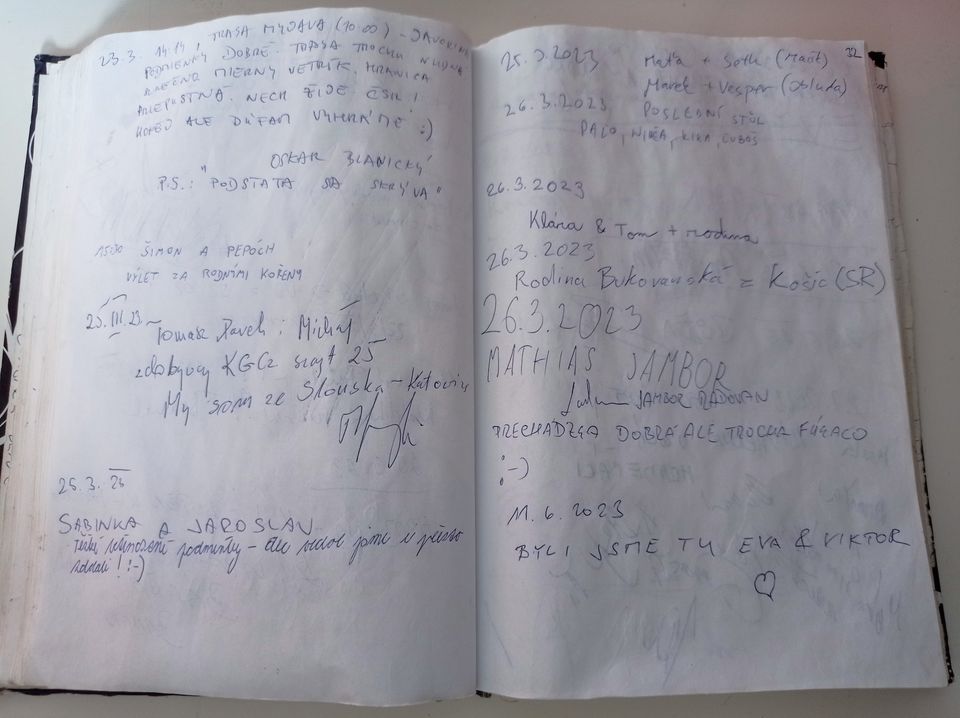 23.3. 14:14, TRASA MYJAVA (10:00) - JAVORINA
PODMIENKY DOBRÉ. TRASA TROCHU NUDNÁ
MIERNY VETRÍK. HRANICA
NECH ŽIJE ČSR!
ALE DÚFAM VYHRÁME :)
OSKAR BLANICKÝ
P.S.: "PODSTATA SA SKRÝVA"
15:30 ŠIMON A PEPOCH
VÝLET ZA RODNÝMI KOŘENY
25.III.23
Tomasz Paweł i Michał
zdobywcy KGCz szczyt 25
My som ze Slonska - Katowic
25.3. 23
SABINKA A JAROSLAV
podmínky - ale jsme i přesto
! :-)
32
25.3.2023 Maťa + (Mašt)
Marek + Vesper (Obluda)
26.3.2023 POSLEDNÍ STŮL
PALO, NIKA, KIKA, ĽUBOŠ
26.3.2023
Klára & Tom + rodina
26.3.2023
Rodina Bukovanská z Košíc (SR)
26.3.2023
MATHIAS JAMBOR
JAMBOR RADOVAN
PRECHÁDZKA DOBRÁ ALE TROCHA FÚKALO
:-)
11.6.2023
BYLI JSME TU EVA & VIKTOR